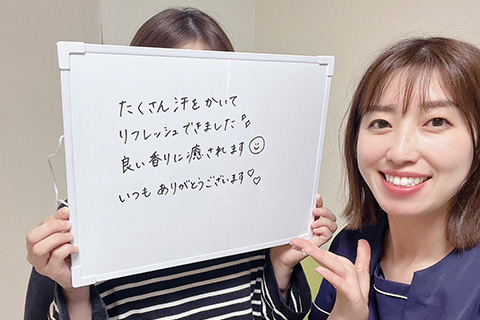 たくさん汗をかいて
リフレッシュできました♪
良い香りに癒されます☺
いつもありがとうございます♡♡